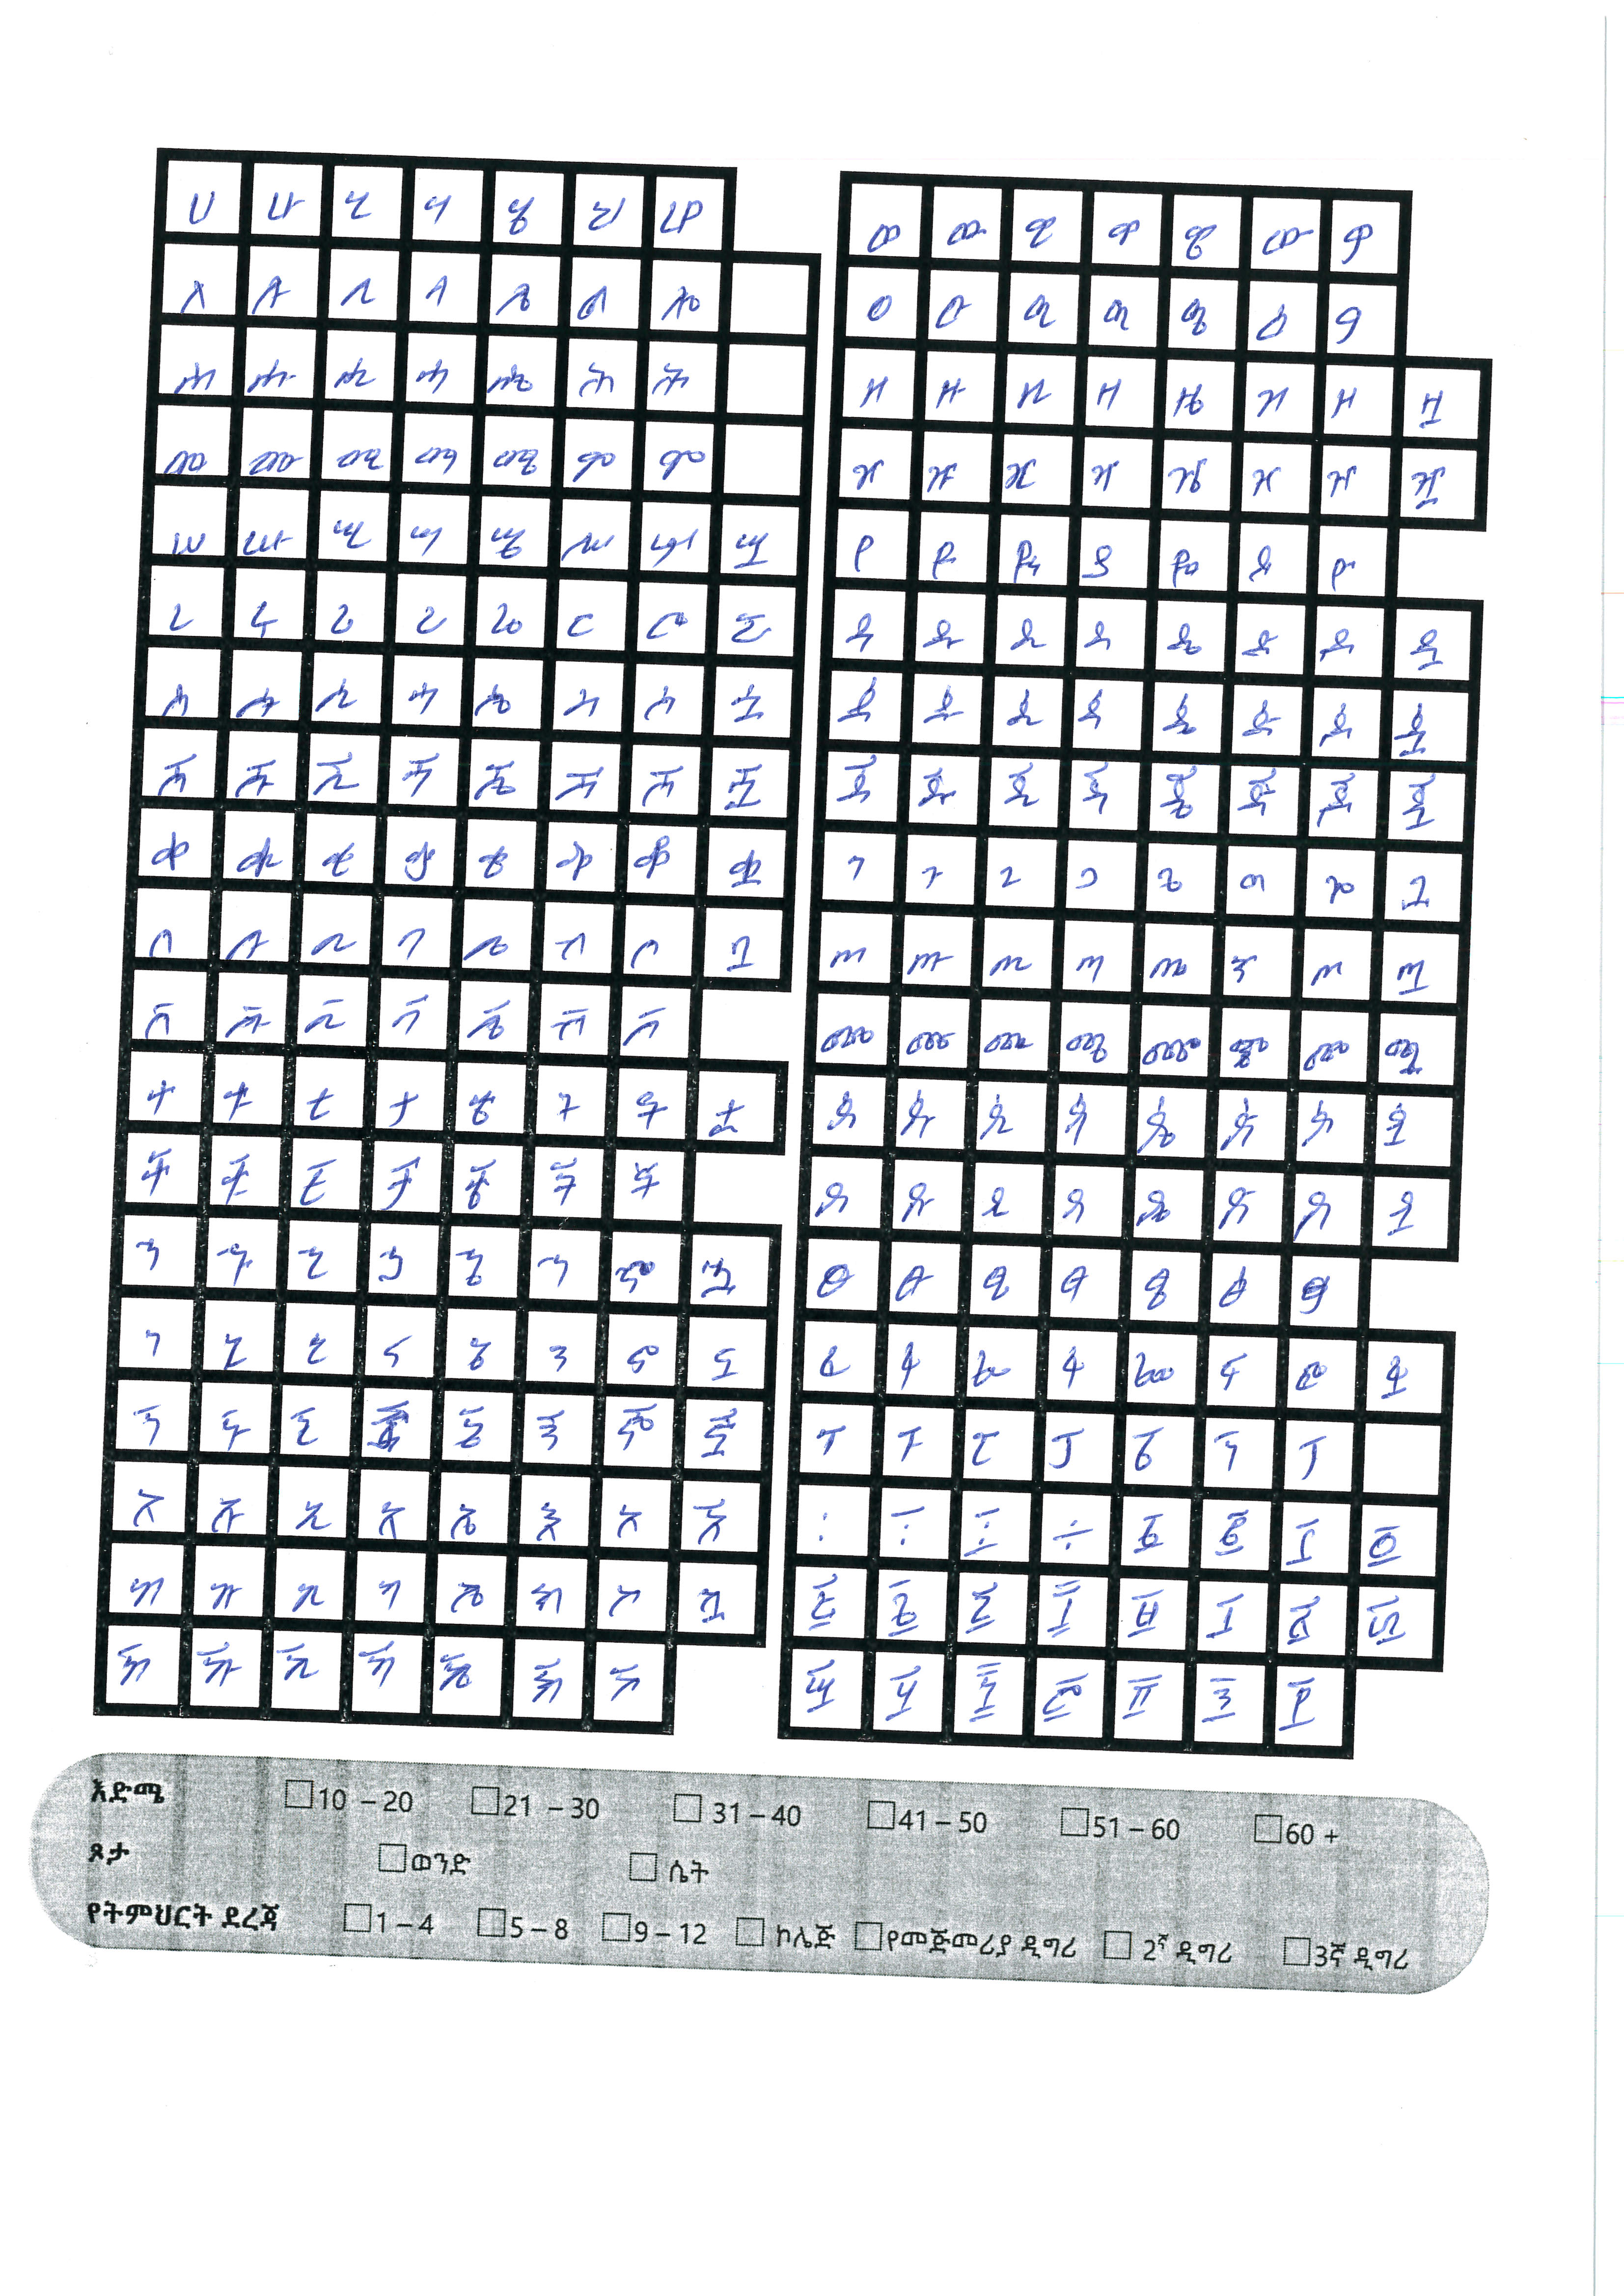 ሀ ሁ ሂ ሃ ሄ ህ ሆ
ለ ሉ ሊ ላ ሌ ል ሎ
ሐ ሑ ሒ ሓ ሔ ሕ ሖ
መ ሙ ሚ ማ ሜ ም ሞ
ሠ ሡ ሢ ሣ ሤ ሥ ሦ ሧ
ረ ሩ ሪ ራ ሬ ር ሮ ሯ
ሰ ሱ ሲ ሳ ሴ ስ ሶ ሷ
ሸ ሹ ሺ ሻ ሼ ሽ ሾ ሿ
ቀ ቁ ቂ ቃ ቄ ቅ ቆ ቋ
በ ቡ ቢ ባ ቤ ብ ቦ ቧ
ቨ ቩ ቪ ቫ ቬ ቭ ቮ
ተ ቱ ቲ ታ ቴ ት ቶ ቷ
ቸ ቹ ቺ ቻ ቼ ች ቾ
ኀ ኁ ኂ ኃ ኄ ኅ ኆ ኋ
ነ ኑ ኒ ና ኔ ን ኖ ኗ
ኘ ኙ ኚ ኛ ኜ ኝ ኞ ኟ
አ ኡ ኢ ኣ ኤ እ ኦ ኧ
ከ ኩ ኪ ካ ኬ ክ ኮ ኳ
ኸ ኹ ኺ ኻ ኼ ኽ ኾ
ወ ዉ ዊ ዋ ዌ ው ዎ
ዐ ዑ ዒ ዓ ዔ ዕ ዖ
ዘ ዙ ዚ ዛ ዜ ዝ ዞ ዟ
ዠ ዡ ዢ ዣ ዤ ዥ ዦ ዧ
የ ዩ ዪ ያ ዬ ይ ዮ
ደ ዱ ዲ ዳ ዴ ድ ዶ ዷ
ዸ ዹ ዺ ዻ ዼ ዽ ዾ ዿ
ጀ ጁ ጂ ጃ ጄ ጅ ጆ ጇ
ገ ጉ ጊ ጋ ጌ ግ ጎ ጓ
ጠ ጡ ጢ ጣ ጤ ጥ ጦ ጧ
ጨ ጩ ጪ ጫ ጬ ጭ ጮ ጯ
ጰ ጱ ጲ ጳ ጴ ጵ ጶ ጷ
ጸ ጹ ጺ ጻ ጼ ጽ ጾ ጿ
ፀ ፁ ፂ ፃ ፄ ፅ ፆ
ፈ ፉ ፊ ፋ ፌ ፍ ፎ ፏ
ፐ ፑ ፒ ፓ ፔ ፕ ፖ
፡ ፣ ፤ ÷
እድሜ 10 – 20 21 – 30 31 – 40 41 – 50 51 – 60 60 +
ጾታ ወንድ ሴት
የትምህርት ደረጃ 1 – 4 5 – 8 9 – 12 ኮሌጅ የመጅመሪያ ዲግሪ 2ኛ ዲግሪ 3ኛ ዲግሪ